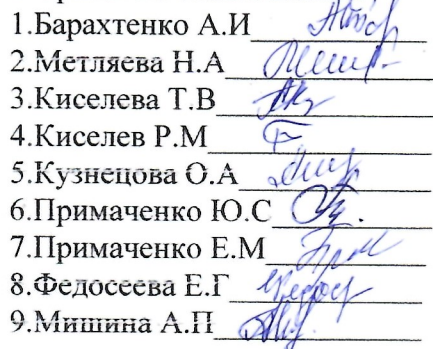 1.Барахтенко А.И
2.Метляева Н.А
3.Киселева Т.В
4.Киселев Р.М
5.Кузнецова О.А
6.Примаченко Ю.С
7.Примаченко Е.М
8.Федосеева Е.Г
9.Мишина А.П